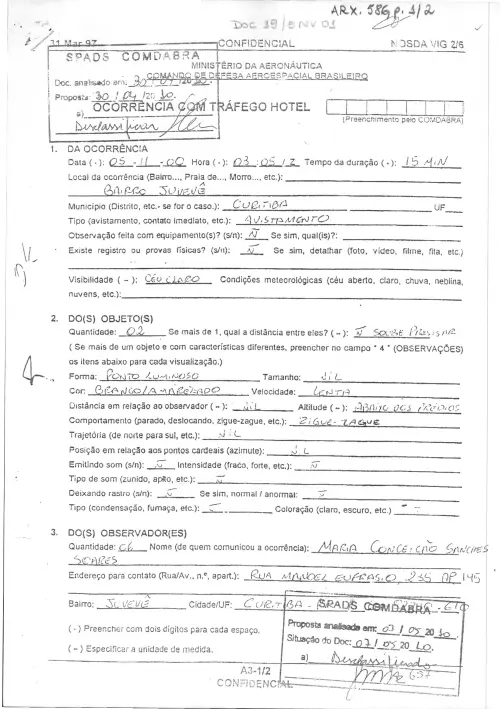 ARX. 586, p. 1/2
Doc 39/e nev 01
31 Mar 97 CONFIDENCIAL NOSDA VIG 2/6
SPADS COMDABRA
MINISTÉRIO DA AERONÁUTICA
Doc. analisado em: 30/04/2010. COMANDO DE DEFESA AEROESPACIAL BRASILEIRO
Proposta 30/04/2010.
OCORRÊNCIA COM TRÁFEGO HOTEL
a) Desclassificar
(Preenchimento pelo COMDABRA)
1. DA OCORRÊNCIA
Data (-): 05-11-00 Hora (-): 03:05/Z Tempo da duração (-): 15 MIN
Local da ocorrência (Bairro..., Praia de..., Morro..., etc.):
BAIRRO JUVEVÊ
Município (Distrito, etc.- se for o caso.): CURITIBA UF
Tipo (avistamento, contato imediato, etc.): AVISTAMENTO
Observação feita com equipamento(s)? (s/n): N Se sim, qual(is)?:
Existe registro ou provas físicas? (s/n): N Se sim, detalhar (foto, vídeo, filme, fita, etc.)
Visibilidade (~): CÉU CLARO Condições meteorológicas (céu aberto, claro, chuva, neblina,
nuvens, etc.):
2. DO(S) OBJETO(S)
Quantidade: 02 Se mais de 1, qual a distância entre eles? (~): Ñ SOUBE PRECISAR
( Se mais de um objeto e com características diferentes, preencher no campo "4" (OBSERVAÇÕES)
os itens abaixo para cada visualização.)
Forma: PONTO LUMINOSO Tamanho: NIL
Cor: BRANCO/AMARELADO Velocidade: LENTA
Distância em relação ao observador (~): NIL Altitude (~): ABAIXO DOS PRÉDIOS
Comportamento (parado, deslocando, zigue-zague, etc.): ZIGUE-ZAGUE
Trajetória (de norte para sul, etc.): NIL
Posição em relação aos pontos cardeais (azimute): NIL
Emitindo som (s/n): N Intensidade (fraco, forte, etc.): N
Tipo de som (zunido, apito, etc.): N
Deixando rastro (s/n): N Se sim, normal / anormal:
Tipo (condensação, fumaça, etc.): Coloração (claro, escuro, etc.)
3. DO(S) OBSERVADOR(ES)
Quantidade: 06 Nome (de quem comunicou a ocorrência): MARIA CONCEIÇÃO SANCHES
SOARES
Endereço para contato (Rua/Av., n.º, apart.): RUA MANOEL EUFRASIO, 235 AP 145
Bairro: JUVEVÊ Cidade/UF: CURITIBA
SPADS COMDABRA
(-) Preencher com dois dígitos para cada espaço.
(~) Especificar a unidade de medida.
Proposta analisada em: 07/05 2010
Situação do Doc: 07/05 2010.
a) Desclassificado
A3-1/2
CONFIDENCIAL